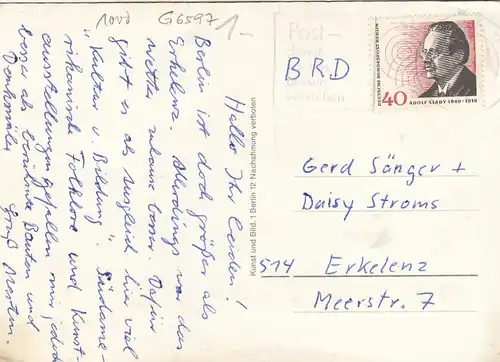 1000 G6597 1.-
Hallo Ihr beiden!
Berlin ist doch größer als
Erkelenz. Allerdings war das
Wetter zuhause besser. Dafür
gibt es als Ausgleich hier viel
"Kultur u. Bildung". Südame-
rikanische Folklore und Kunst-
ausstellungen gefallen mir jedoch
besser als berühmte Bauten und
Denkmäler.
Gruß
Kunst und Bild, 1 Berlin 12 Nachahmung verboten
Post-
BRD
DEUTSCHE BUNDESPOST BERLIN
40 ADOLF SLABY 1849-1913
Gerd Sänger +
Daisy Stroms
514 Erkelenz
Meerstr. 7